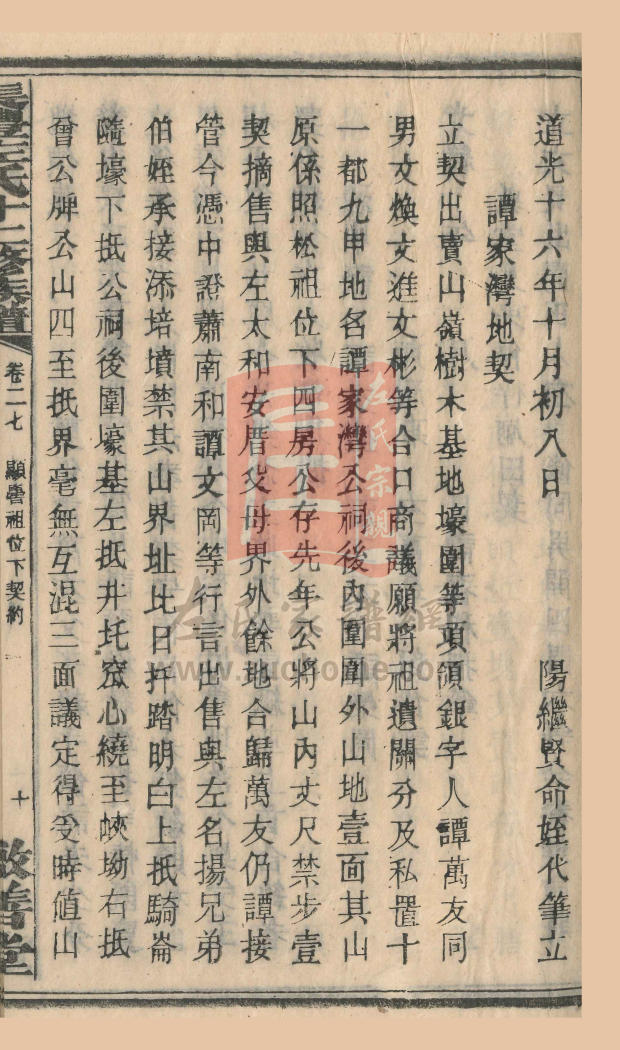 道光十六年十月初八日　陽繼賢命姪代筆立
譚家灣地契
立契出賣山嶺樹木基地壕圍等項領銀字人譚萬友同
男文煥文進文彬等合口商議願將祖遺關分及私置十
一都九甲地名譚家灣公祠後內圍圍外山地壹面其山
原係照松祖位下四房公存先年公將山內丈尺禁步壹
契摘售與左太和安厝父母界外餘地合歸萬友仍譚接
管今憑中證蕭南和譚文岡等行言出售與左名揚兄弟
伯姪承接添培墳禁其山界址比日扦踏明白上抵騎崙
隨壕下抵公祠後圍壕基左抵井圫窊心繞至峽坳右抵
曾公牌公山四至抵界毫無互混三面議定得受時值山
左氏十二修族譜
卷二七　顯譽祖位下契約
十
敦善堂
左氏宗親
左氏宗譜網